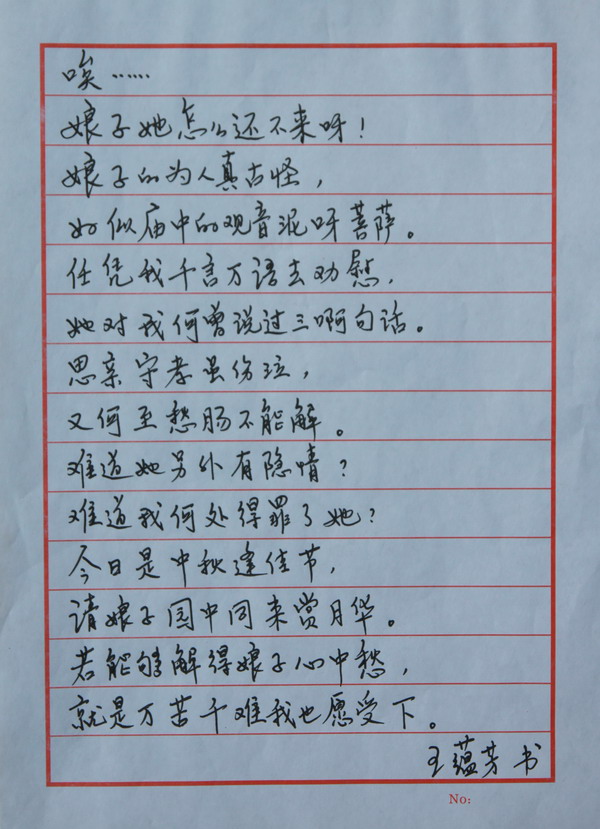 唉……
娘子她怎么还不来呀！
娘子的为人真古怪，
如似庙中的观音泥呀菩萨。
任凭我千言万语去劝慰，
她对我何曾说过三啊句话。
思亲守孝虽伤泣，
又何至愁肠不能解。
难道她另外有隐情？
难道我何处得罪了她？
今日是中秋逢佳节，
请娘子园中同来赏月华。
若能够解得娘子心中愁，
就是万苦千难我也愿受下。
王蕴芳书
No: